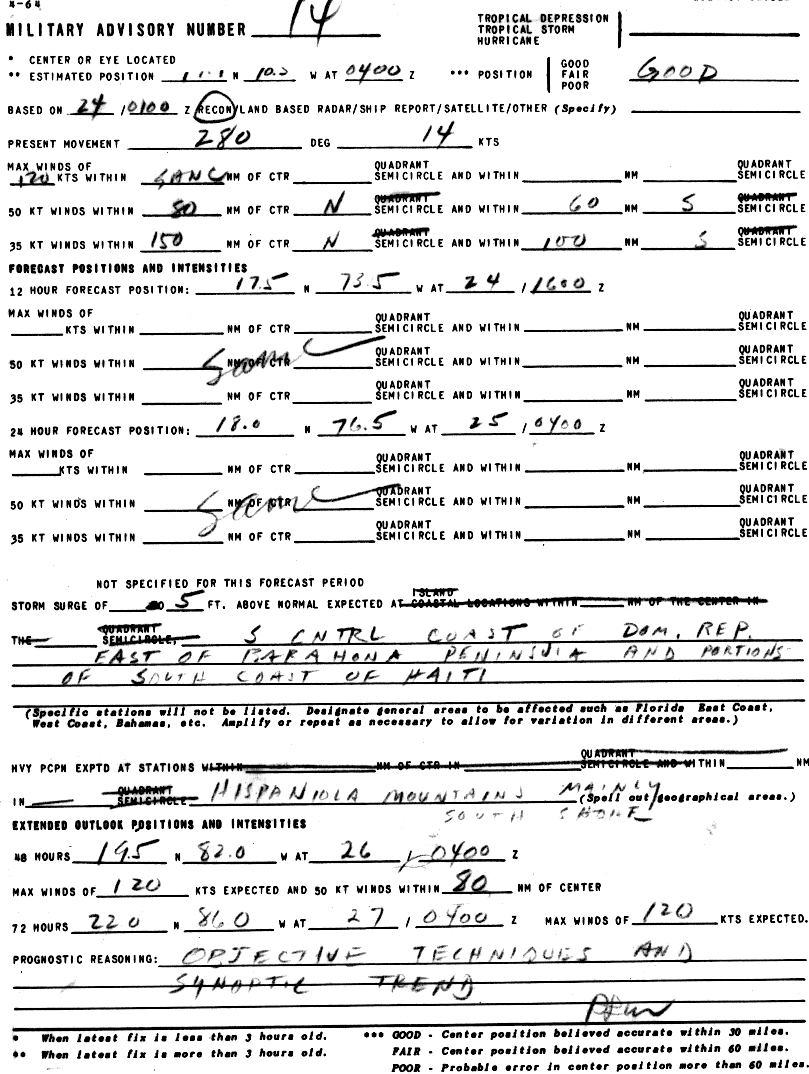 4-64
MILITARY ADVISORY NUMBER 14 TROPICAL DEPRESSION
TROPICAL STORM
HURRICANE
* CENTER OR EYE LOCATED
** ESTIMATED POSITION N W AT 0400 Z *** POSITION GOOD FAIR POOR GOOD
BASED ON 24 /0100 Z RECON/LAND BASED RADAR/SHIP REPORT/SATELLITE/OTHER (Specify)
PRESENT MOVEMENT 280 DEG 14 KTS
MAX WINDS OF QUADRANT QUADRANT
120 KTS WITHIN NM OF CTR SEMICIRCLE AND WITHIN NM SEMICIRCLE
QUADRANT QUADRANT
50 KT WINDS WITHIN 80 NM OF CTR N SEMICIRCLE AND WITHIN 60 NM S SEMICIRCLE
QUADRANT QUADRANT
35 KT WINDS WITHIN 150 NM OF CTR N SEMICIRCLE AND WITHIN 100 NM S SEMICIRCLE
FORECAST POSITIONS AND INTENSITIES
12 HOUR FORECAST POSITION: 17.5 N 73.5 W AT 24 /1600 Z
MAX WINDS OF QUADRANT QUADRANT
KTS WITHIN NM OF CTR SEMICIRCLE AND WITHIN NM SEMICIRCLE
QUADRANT QUADRANT
50 KT WINDS WITHIN NM OF CTR SEMICIRCLE AND WITHIN NM SEMICIRCLE
Same
QUADRANT QUADRANT
35 KT WINDS WITHIN NM OF CTR SEMICIRCLE AND WITHIN NM SEMICIRCLE
24 HOUR FORECAST POSITION: 18.0 N 76.5 W AT 25 /0400 Z
MAX WINDS OF QUADRANT QUADRANT
KTS WITHIN NM OF CTR SEMICIRCLE AND WITHIN NM SEMICIRCLE
QUADRANT QUADRANT
50 KT WINDS WITHIN NM OF CTR SEMICIRCLE AND WITHIN NM SEMICIRCLE
Same
QUADRANT QUADRANT
35 KT WINDS WITHIN NM OF CTR SEMICIRCLE AND WITHIN NM SEMICIRCLE
NOT SPECIFIED FOR THIS FORECAST PERIOD
ISLAND
STORM SURGE OF 5 FT. ABOVE NORMAL EXPECTED AT COASTAL LOCATIONS WITHIN NM OF THE CENTER IN
QUADRANT
THE SEMICIRCLE, S CNTRL COAST OF DOM. REP.
EAST OF BARAHONA PENINSULA AND PORTIONS
OF SOUTH COAST OF HAITI
(Specific stations will not be listed. Designate general areas to be affected such as Florida East Coast,
West Coast, Bahamas, etc. Amplify or repeat as necessary to allow for variation in different areas.)
QUADRANT
HVY PCPN EXPTD AT STATIONS WITHIN NM OF CTR IN SEMICIRCLE AND WITHIN NM
QUADRANT
IN SEMICIRCLE HISPANIOLA MOUNTAINS MAINLY (Spell out geographical areas.)
SOUTH SHORE
EXTENDED OUTLOOK POSITIONS AND INTENSITIES
48 HOURS 19.5 N 82.0 W AT 26 /0400 Z
MAX WINDS OF 120 KTS EXPECTED AND 50 KT WINDS WITHIN 80 NM OF CENTER
72 HOURS 22.0 N 86.0 W AT 27 /0400 Z MAX WINDS OF 120 KTS EXPECTED.
PROGNOSTIC REASONING: OBJECTIVE TECHNIQUES AND
SYNOPTIC TREND
* When latest fix is less than 3 hours old. *** GOOD - Center position believed accurate within 30 miles.
** When latest fix is more than 3 hours old. FAIR - Center position believed accurate within 60 miles.
POOR - Probable error in center position more than 60 miles.